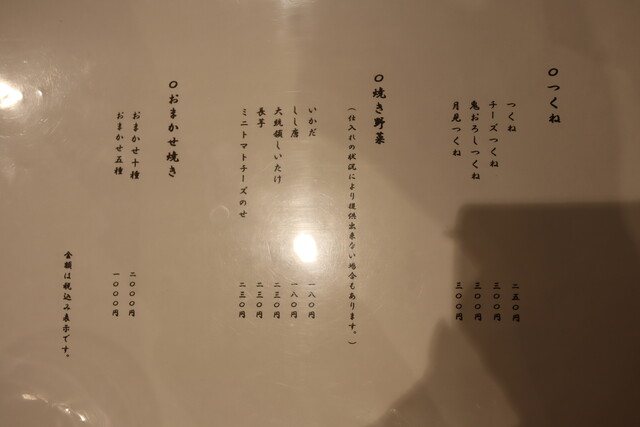 ○つくね
つくね 二五〇円
チーズつくね 三〇〇円
鬼おろしつくね 三〇〇円
月見つくね 三〇〇円
○焼き野菜
（仕入れの状況により提供出来ない場合もあります。）
いかだ 一八〇円
しし唐 一八〇円
大統領しいたけ 二三〇円
長芋 二三〇円
ミニトマトチーズのせ 二三〇円
○おまかせ焼き
おまかせ十種 二〇〇〇円
おまかせ五種 一〇〇〇円
金額は税込み表示です。